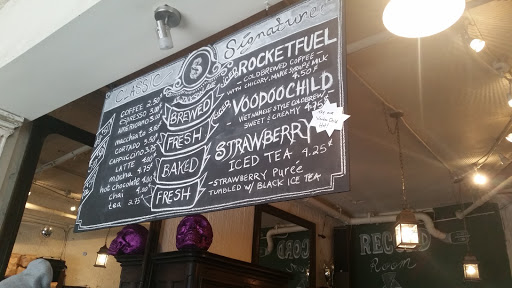 CLASSIC
COFFEE 2.50
ESPRESSO 3.00
AMERICANO 3.00
macchiato 3.50
CORTADO 3.50
CAPPUCCINO 3.75
LATTE 4.00
mocha 4.75
hot chocolate 4.00
chai 4.00
tea 2.75
S
BREWED
FRESH
BAKED
FRESH
Signature
ROCKETFUEL
COLDBREWED COFFEE
WITH CHICORY, MAPLE SYRUP, MILK
4.50
VOODOOCHILD
VIETNAMESE STYLE COLDBREW
SWEET & CREAMY 4.75
STRAWBERRY
ICED TEA 4.25¢
STRAWBERRY PURÉE
TUMBLED W/ BLACK ICE TEA
RECORD
ROOM